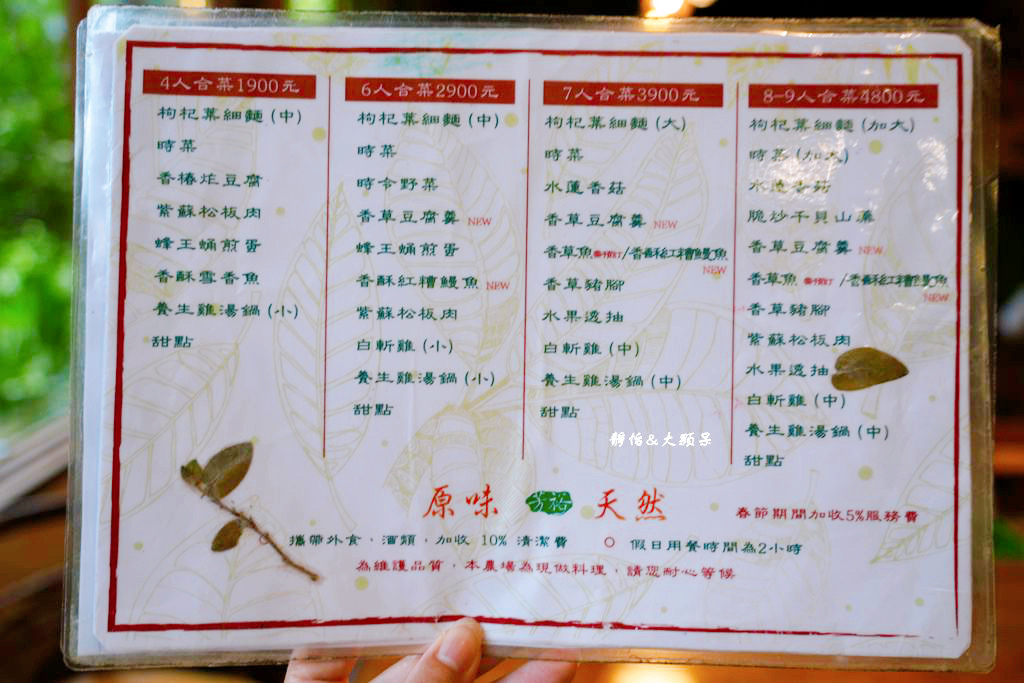 4人合菜1900元
枸杞葉細麵(中)
時菜
香椿炸豆腐
紫蘇松板肉
蜂王蛹煎蛋
香酥雪香魚
養生雞湯鍋(小)
甜點
6人合菜2900元
枸杞葉細麵(中)
時菜
時令野菜
香草豆腐羹 NEW
蜂王蛹煎蛋
香酥紅糟鰻魚 NEW
紫蘇松板肉
白斬雞(小)
養生雞湯鍋(小)
甜點
7人合菜3900元
枸杞葉細麵(大)
時菜
水蓮香菇
香草豆腐羹 NEW
香草魚需預訂/香酥紅糟鰻魚
NEW
香草豬腳
水果透抽
白斬雞(中)
養生雞湯鍋(中)
甜點
8-9人合菜4800元
枸杞葉細麵(加大)
時菜(加大)
水蓮香菇
脆炒干貝山藥
香草豆腐羹 NEW
香草魚 需預訂/香酥紅糟鰻魚
NEW
香草豬腳
紫蘇松板肉
水果透抽
白斬雞(中)
養生雞湯鍋(中)
甜點
靜怡&大顆呆
原味 芳裕 天然
春節期間加收5%服務費
○ 攜帶外食、酒類,加收 10% 清潔費 ○ 假日用餐時間為2小時
為維護品質,本農場為現做料理,請您耐心等候